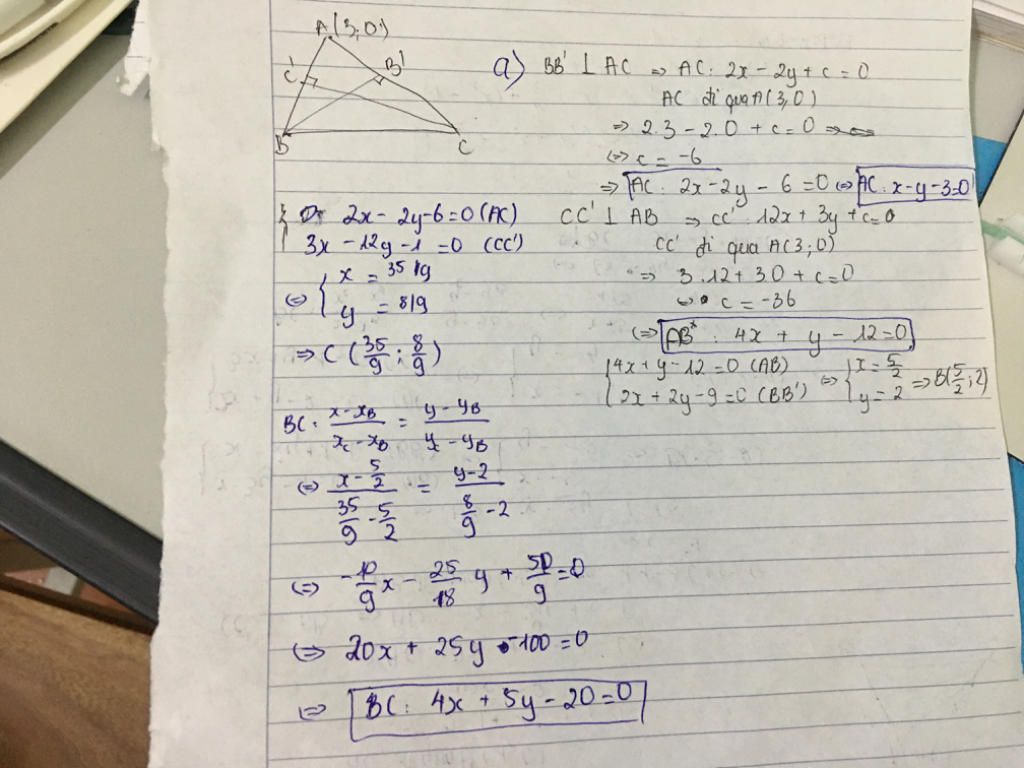 A(3,0)
C'
B'
B
C
a) BB' ⊥ AC => AC: 2x - 2y + c = 0
AC đi qua A(3,0)
=> 2.3 - 2.0 + c = 0
<=> c = -6
=> AC: 2x - 2y - 6 = 0 <=> AC: x - y - 3 = 0
CC' ⊥ AB => CC' 12x + 3y + c = 0
CC' đi qua A(3;0)
=> 3.12 + 3.0 + c = 0
<=> c = -36
<=> AB: 4x + y - 12 = 0
{ 4x + y - 12 = 0 (AB)
2x + 2y - 9 = 0 (BB') <=> { x = 5/2
y = 2 => B(5/2; 2)
{ 2x - 2y - 6 = 0 (AC)
3x - 12y - 1 = 0 (CC')
<=> { x = 35/9
y = 8/9
=> C (35/9; 8/9)
BC: (x - x_B)/(x_C - x_B) = (y - y_B)/(y_C - y_B)
<=> (x - 5/2)/(35/9 - 5/2) = (y - 2)/(8/9 - 2)
<=> -10/9 x - 25/18 y + 50/9 = 0
<=> 20x + 25y - 100 = 0
=> BC: 4x + 5y - 20 = 0